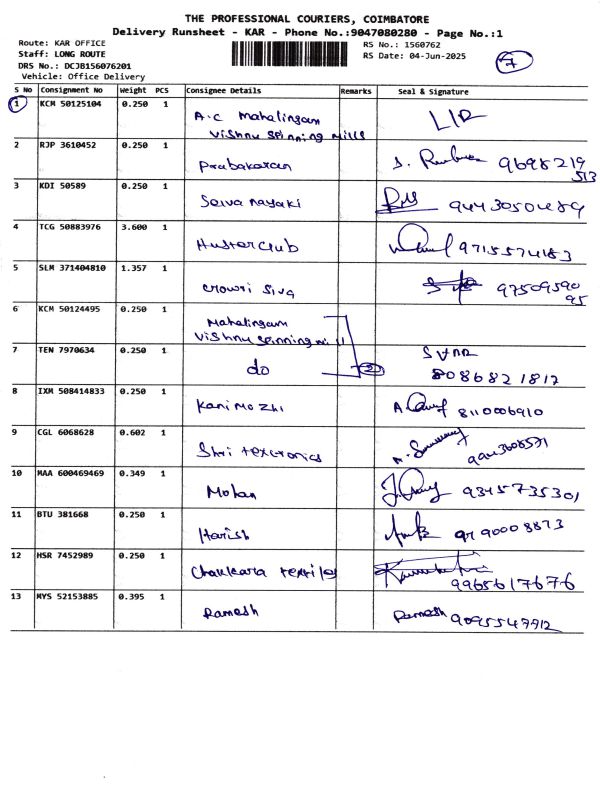 THE PROFESSIONAL COURIERS, COIMBATORE
Delivery Runsheet - KAR - Phone No.:9047080280 - Page No.:1
Route: KAR OFFICE
RS No.: 1560762
Staff: LONG ROUTE
RS Date: 04-Jun-2025
7
DRS No.: DCJB156076201
Vehicle: Office Delivery
S No Consignment No Weight PCS Consignee Details Remarks Seal & Signature
1 KCM 50125104 0.250 1
A.C Mahalingam
Vishnu Spinning Mills
2 RJP 3610452 0.250 1
Prabakaran 9698219
513
3 KDI 50589 0.250 1
Selvanayaki 9443050489
4 TCG 50883976 3.600 1
Hunter club 9715574183
5 SLM 371404810 1.357 1
Gowri Siva 97509590
95
6 KCM 50124495 0.250 1
Mahalingam
Vishnu Spinning Mill
7 TEN 7970634 0.250 1
do 2 8086821812
8 IXM 508414833 0.250 1
Kanimozhi 8110006910
9 CGL 6068628 0.602 1
Shri textronics
10 MAA 600469469 0.349 1
Mohan 9345735301
11 BTU 381668 0.250 1
Harish 9790008873
12 HSR 7452989 0.250 1
Textiles
9965617676
13 MYS 52153885 0.395 1
Ramesh Ramesh 9095547912